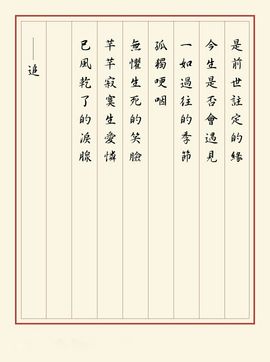 是前世註定的緣
今生是否會遇見
一如過往的季節
孤獨哽咽
無懼生死的笑臉
芊芊寂寞生愛憐
已風乾了的淚腺
——追